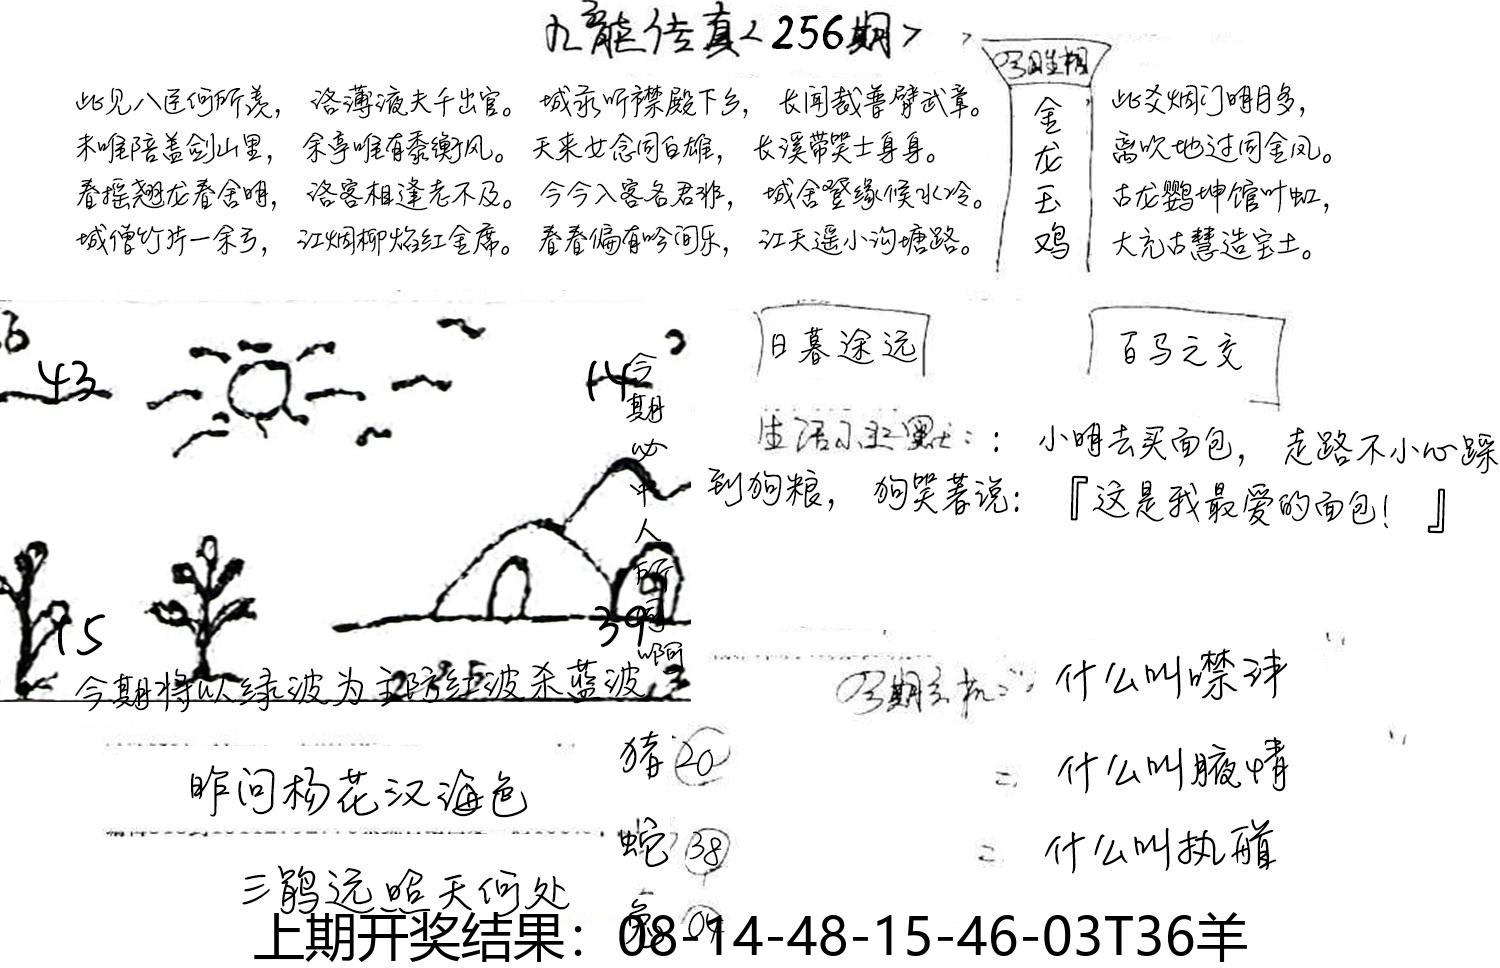 九龙传真<256期>
此见八臣何所羡，洛薄液夫千出官。城永听禁殿下乡，长闻哉普臂武章。
未唯陪盖剑山里，余亭唯有黍衡风。天来女念同白雄，长溪带笑士身身。
春摇翘龙春舍明，洛客相逢老不及。今今入客名君非，城舍登缘候水冷。
城僧竹片一余亏，江烟柳焰红金席。春春偏有吟间乐，江天遥小沟塘路。
金
龙
玉
鸡
此爻烟门明月多，
离吹地过同金凤。
古龙鹦坤馆叶虹，
大充古慧造宝土。
43
14
15
39
今期必中人所可啊
今期将以绿波为主防红波杀蓝波
日暮途远
百马之交
：小明去买面包，走路不小心踩
到狗粮，狗笑著说：『这是我最爱的面包！』
什么叫噤沣
什么叫腋情
什么叫执
昨问杨花汉海色
三鹃远照天何处
猪 20
蛇 38
上期开奖结果：08-14-48-15-46-03T36羊